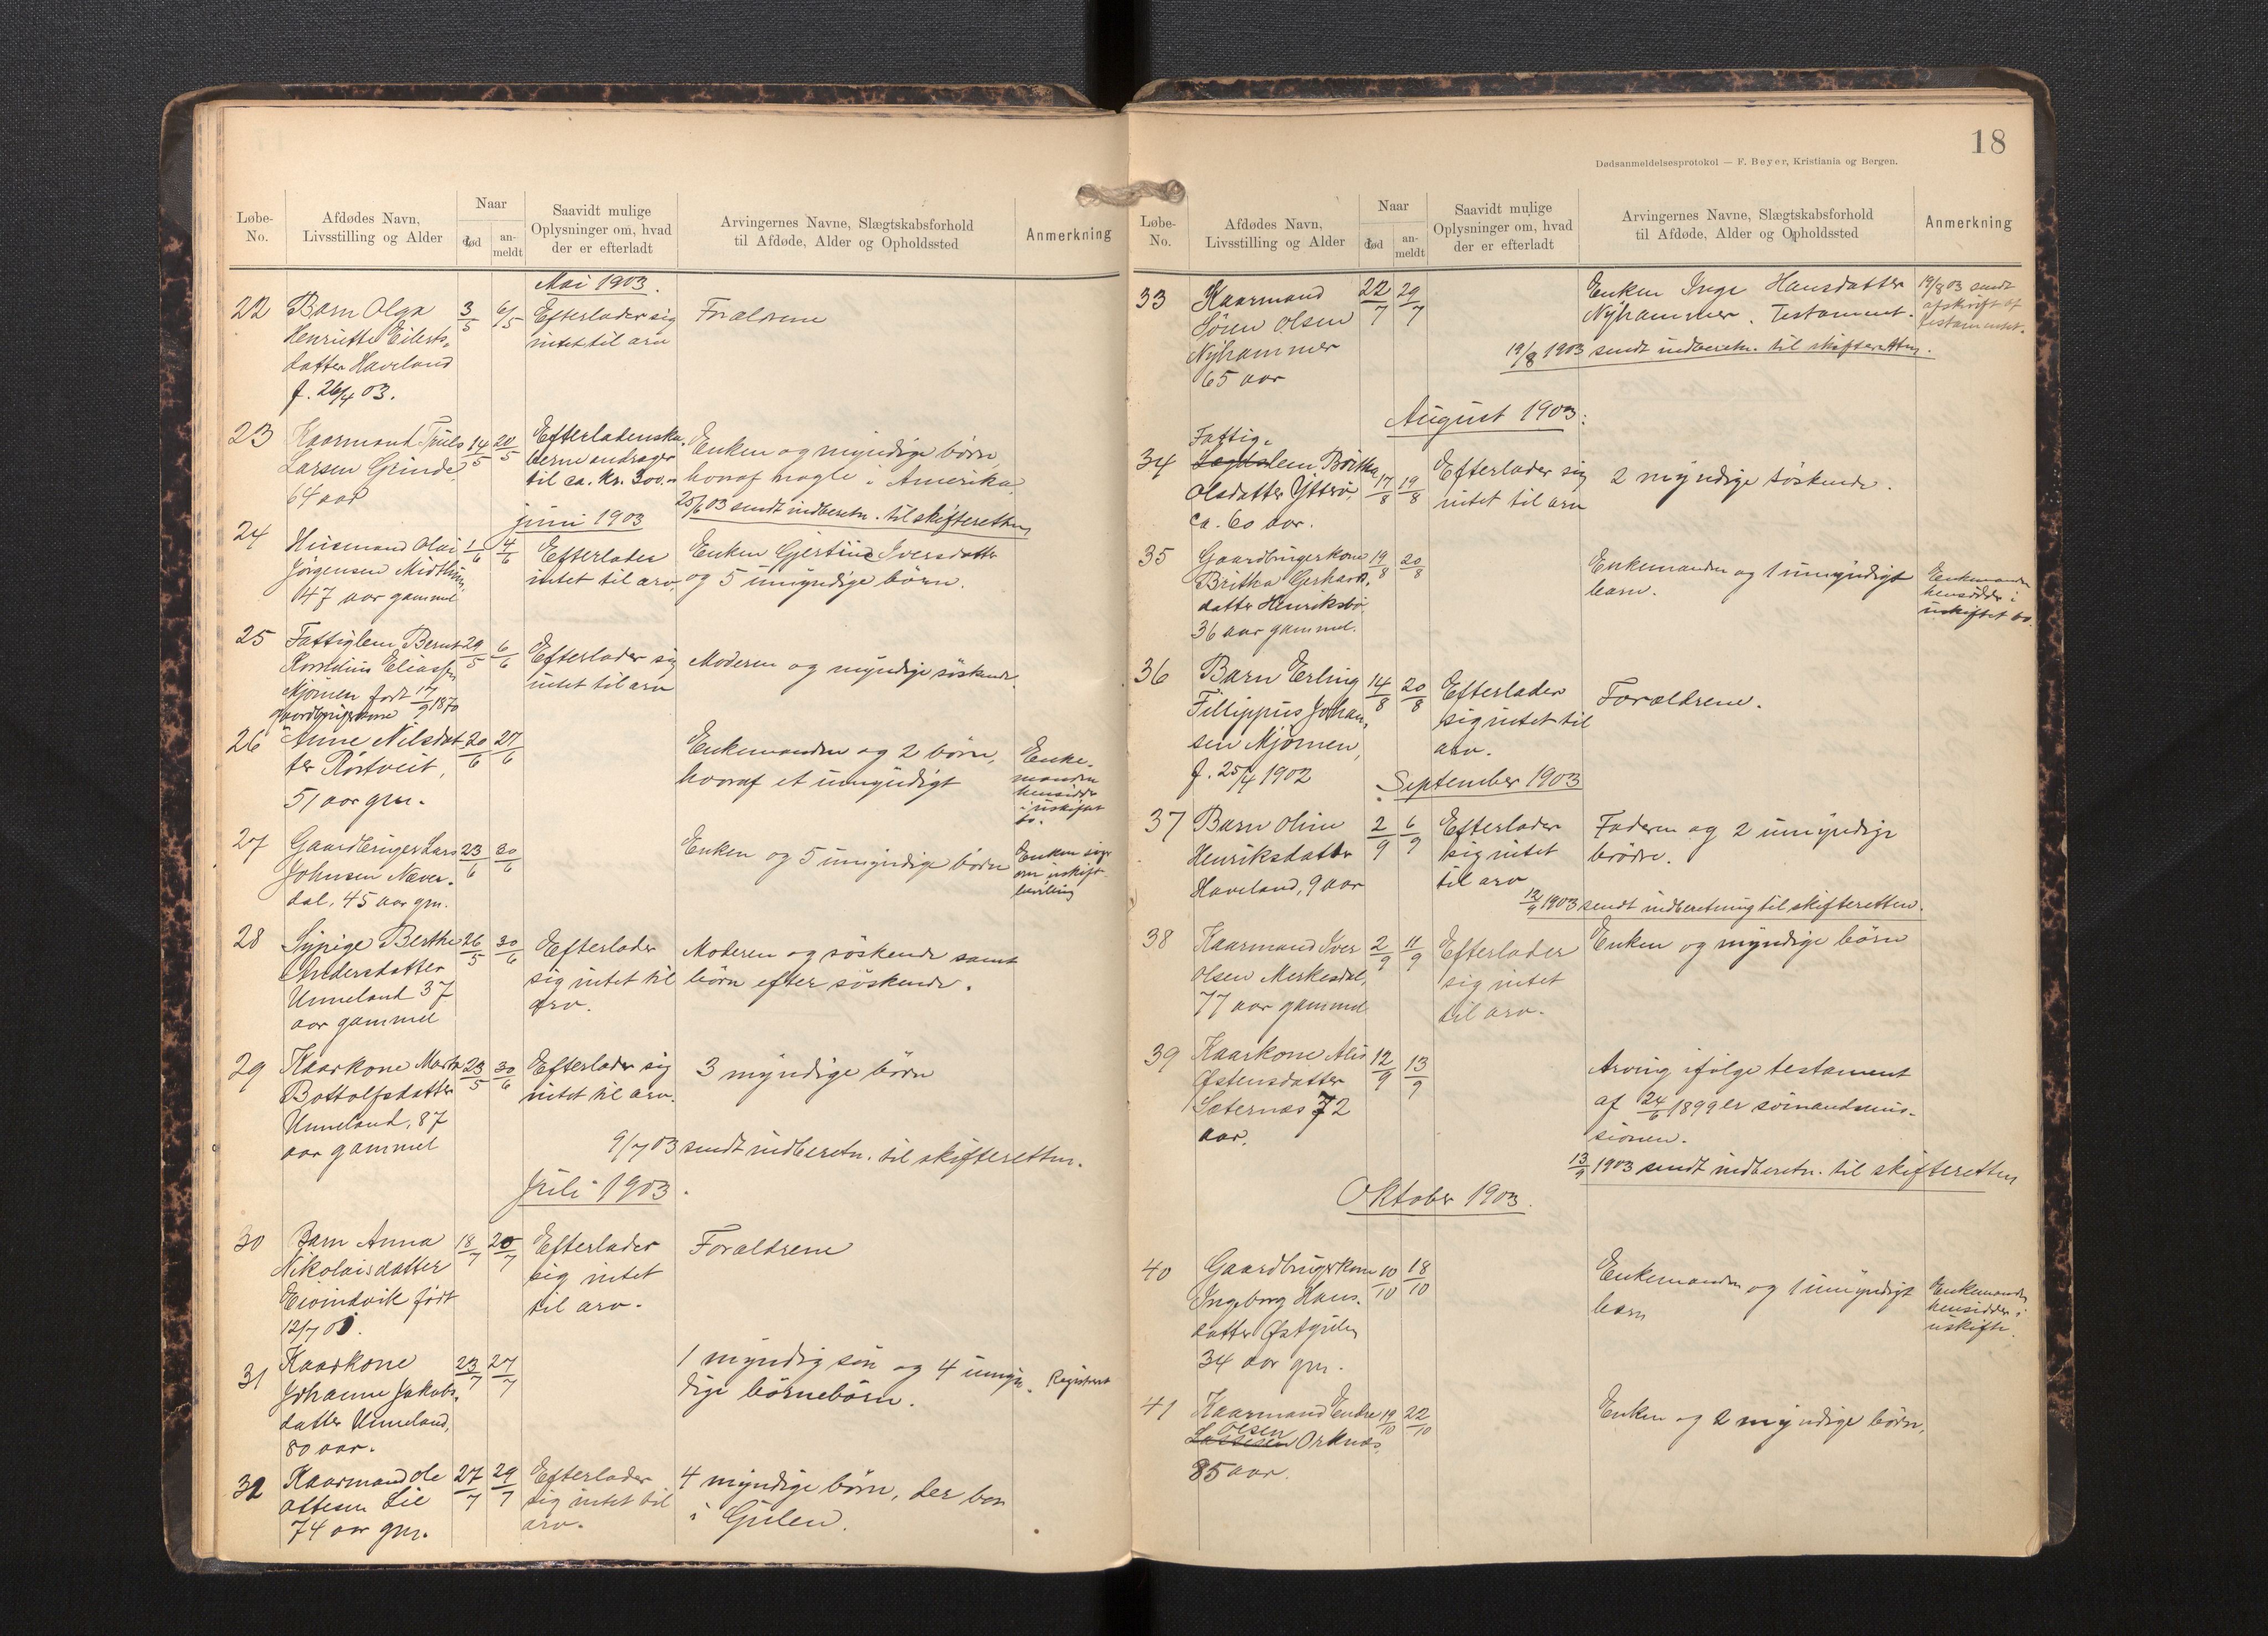 Løbe-
No.
Afdødes Navn,
Livsstilling og Alder
Naar
død
an-
meldt
Saavidt mulige
Oplysninger om, hvad
der er efterladt
Arvingernes Navne, Slægtskabsforhold
til Afdøde, Alder og Opholdssted
Anmerkning
Mai 1903.
22
Barn Olga
Henriette Eilerts-
datter Haveland
f. 26/4 03.
3/5
6/5
Efterlader sig
intet til arv
Forældrene
23
Kaarmand Truls
Larsen Grinde,
64 aar
14/5
20/5
Efterladenska-
berne andrager
til ca. kr. 300.-
Enken og myndige børn,
hvoraf nogle i Amerika.
25/6 03 sendt indberetn. til skifteretten
juni 1903
24
Husmand Olai
Jørgensen Midthun,
47 aar gammel
1/6
4/6
Efterlader
intet til arv.
Enken Gjertine Iversdatter
og 5 umyndige børn.
25
Fattiglem Bernt
Eliassen
Mjømen født 17/9 1870
29/5
6/6
Efterlader sig
intet til arv
Moderen og myndige søskende.
26
gaardbrugerkone
Anne Nilsdat-
ter Röstveit,
51 aar gm.
20/6
27/6
Enkemanden og 2 børn,
hvoraf et umyndigt
Enke-
manden
hensidder
i uskiftet
bo.
27
Gaardbruger Lars
Johnsen Næver-
dal, 45 aar gm.
23/6
30/6
Enken og 5 umyndige børn
Enken
om uskift-
bevilling
28
Sypige Berthe
Andersdatter
Unneland 37
aar gammel
26/5
30/6
Efterlader
sig intet til
arv.
Moderen og søskende samt
børn efter søskende.
29
Kaarkone Marta
Bottolfsdatter
Unneland, 87
aar gammel
23/5
30/6
Efterlader sig
intet til arv.
3 myndige børn
9/7 03 sendt indberetn. til skifteretten.
Juli 1903.
30
Barn Anna
Nikolaisdatter
Eivindvik født
12/7 03.
18/7
20/7
Efterlader
sig intet
til arv.
Forældrene
31
Kaarkone
Johanne Jakobs-
datter Unneland,
80 aar.
23/7
27/7
1 myndig søn og 4 umyn-
dige børnebørn.
Registrert
32
Kaarmand Ole
Ottesen Lie
74 aar gm.
27/7
29/7
Efterlader
sig intet til
arv.
4 myndige børn, der bor
i Gulen.
18
Dødsanmeldelsesprotokol — F. Beyer, Kristiania og Bergen.
Løbe-
No.
Afdødes Navn,
Livsstilling og Alder
Naar
død
an-
meldt
Saavidt mulige
Oplysninger om, hvad
der er efterladt
Arvingernes Navne, Slægtskabsforhold
til Afdøde, Alder og Opholdssted
Anmerkning
33
Kaarmand
Søren Olsen
Nyhammer
65 aar
22/7
29/7
Enken Inge Hansdatter
Nyhammer. Testament.
19/8 03 sendt
afskrift af
testamentet.
19/8 1903 sendt indberetn. til skifteretten.
August 1903.
34
Fattig-
Lægdslem Britha
Olsdatter Ytterø,
ca. 60 aar.
17/8
19/8
Efterlader sig
intet til arv
2 myndige søskende.
35
Gaardbrugerkone
Britha Gerhards-
datter Henriksbø
36 aar gammel.
19/8
20/8
Enkemanden og 1 umyndigt
barn.
Enkemanden
hensidder i
uskiftet bo.
36
Barn Erling
Fillippus Johan-
sen Mjømen,
f. 25/4 1902
14/8
20/8
Efterlader
sig intet til
arv.
Forældrene.
September 1903
37
Barn Oline
Henriksdatter
Haveland, 9 aar
2/9
6/9
Efterlader
sig intet
til arv
Faderen og 2 umyndige
brødre.
12/9 1903 sendt indberetning til skifteretten.
38
Kaarmand Iver
Olsen Merkesdal,
77 aar gammel
2/9
11/9
Efterlader
sig intet
til arv.
Enken og myndige børn
39
Kaarkone Alis
Østensdatter
Sæternæs 72
aar.
12/9
13/9
Arving ifølge testament
af 24/6 1899 er sømandsmis-
sionen.
13/9 1903 sendt indberetn. til skifteretten
Oktober 1903.
40
Gaardbrugerkone
Ingeborg Hans-
datter Østgulen
34 aar gm.
10/10
18/10
Enkemanden og 1 umyndigt
barn
Enkemanden
hensidder i
uskifte.
41
Kaarmand Endre
Olsen
Orknes,
85 aar.
19/10
22/10
Enken og 2 myndige børn.